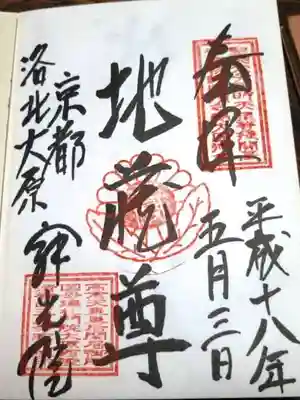 奉拝
平成十八年
五月三日
地蔵尊
京都
洛北大原
寂光院